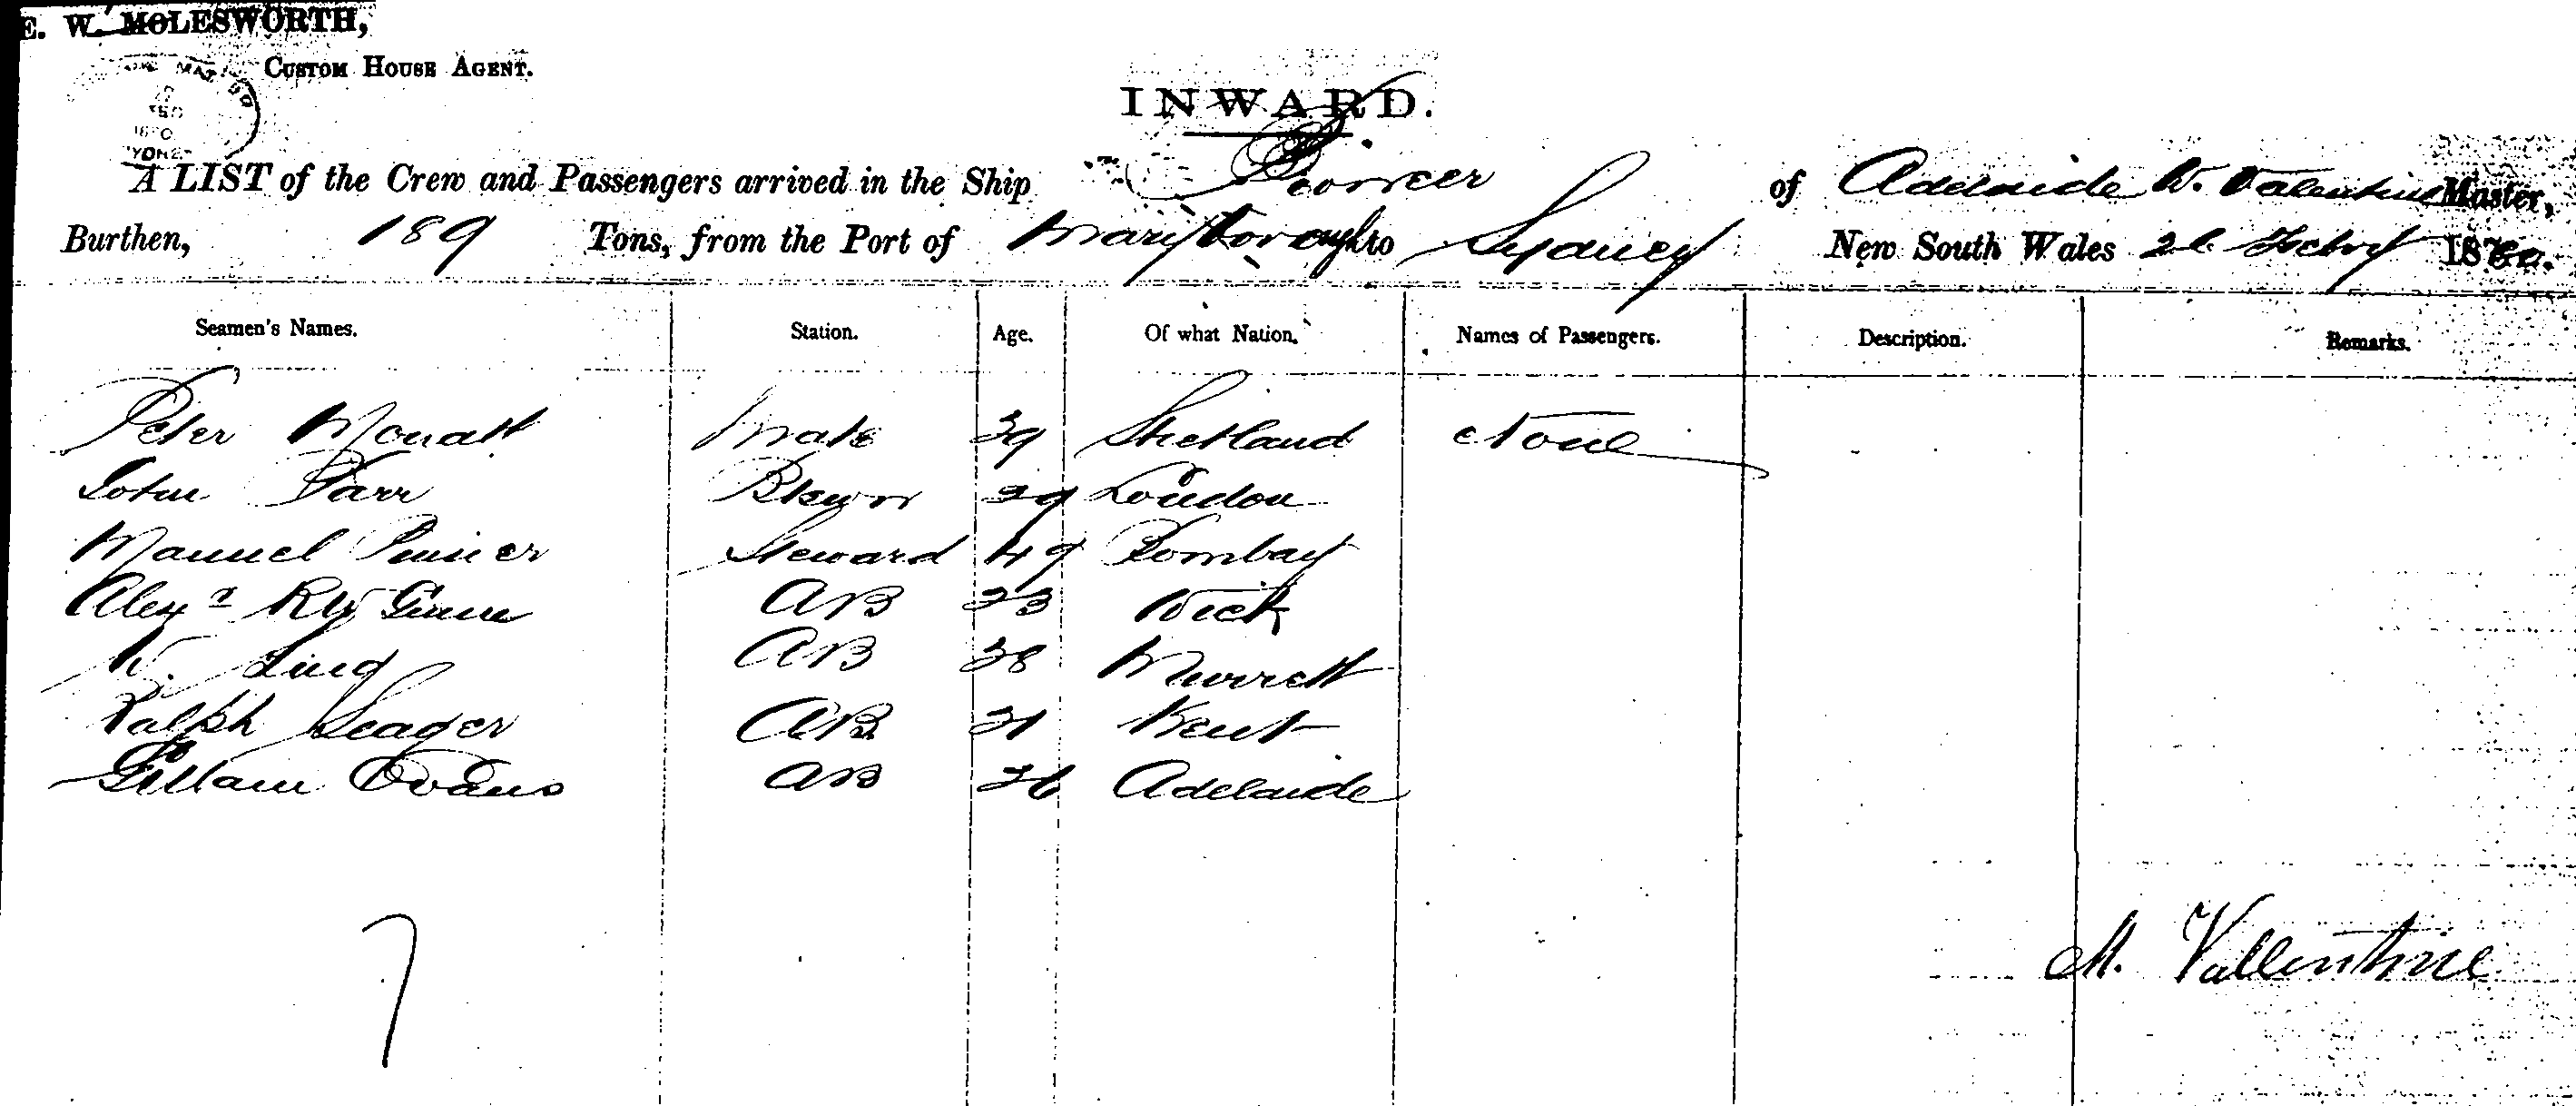 E. W. MOLESWORTH,
CUSTOM HOUSE AGENT.
INWARD.
A LIST of the Crew and Passengers arrived in the Ship Pioneer of Adelaide W. Valentine Master,
Burthen, 189 Tons, from the Port of Maryborough to Sydney New South Wales 26 Febry 1880.
Seamen's Names. Station. Age. Of what Nation. Names of Passengers. Description. Remarks.
Peter Mouatt Mate 39 Shetland None
John Parr Bsewn 29 London
Manuel Steward 49 Bombay
Alexr Gunn AB 23 Wick
W. King AB 38
Ralph Seager AB 21 Kent
Gillam Evans AB 26 Adelaide
7
M. Vallentine